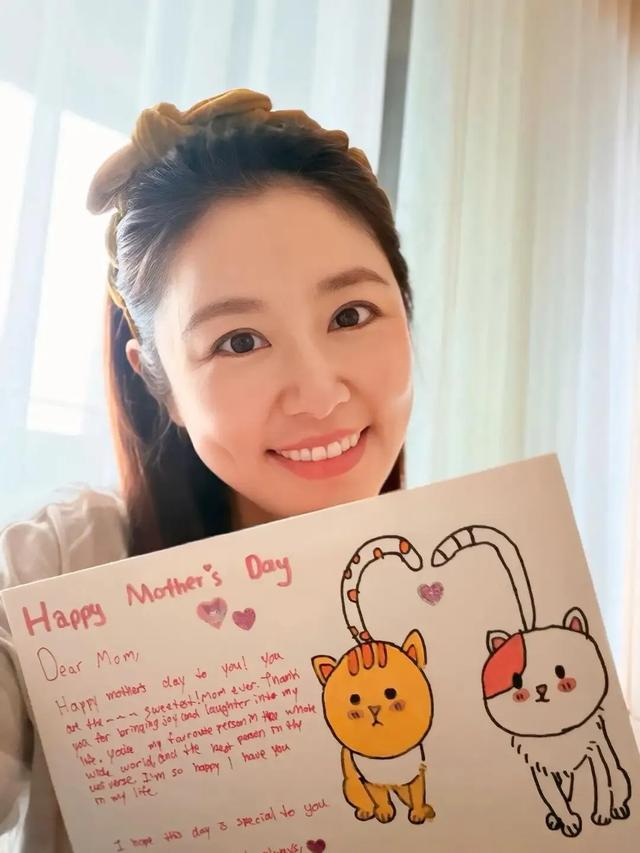 Happy Mother's Day
Dear Mom,
Happy mothers day to you! you
are the --- sweetest! Mom ever. Thank
you for bringing joy and laughter into my
life. You're my favourite person in the whole
wide world, and the best person in the
universe. I'm so happy I have you
in my life
I hope this day is special to you
always,